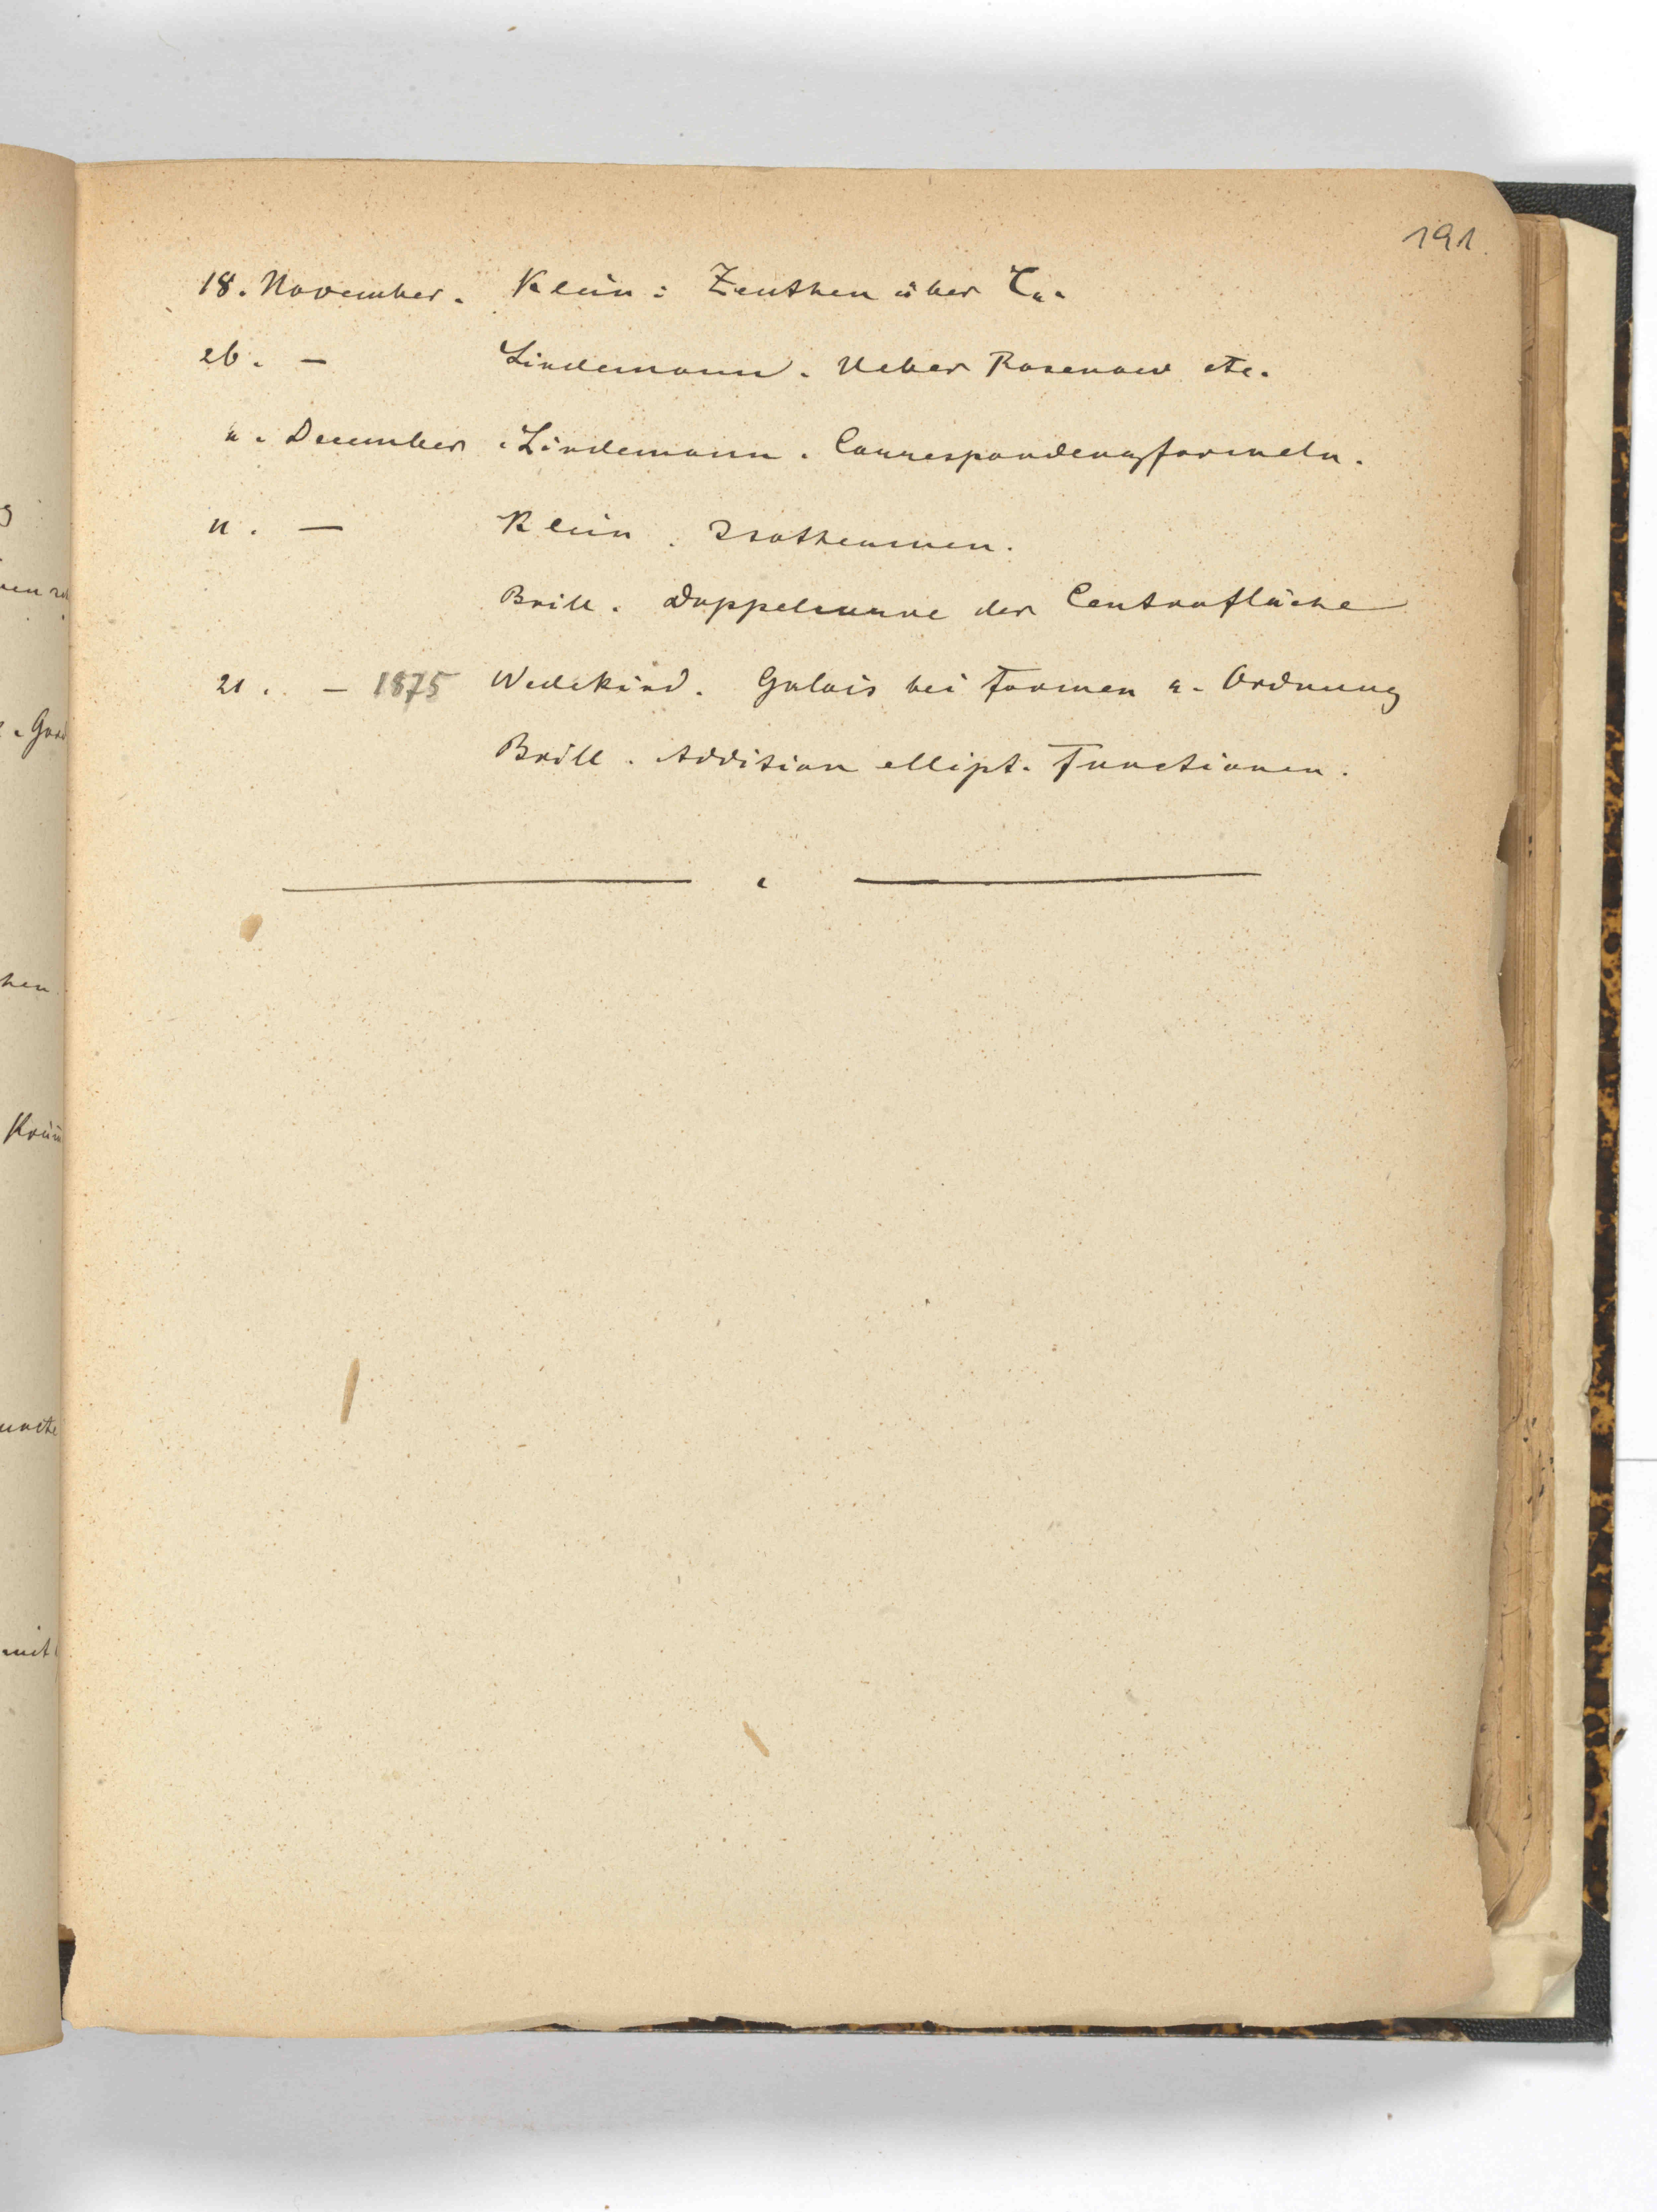 191.
18. November. Klein: Zeuthen über C₄.
26. — Lindemann. Ueber Rosenow etc.
4. December. Lindemann. Correspondenzformeln.
11. — Klein. Isothermen.
Brill. Doppelcurve der Centrafläche
21. — 1875 Wedekind. Galois bei Formen 4. Ordnung
Brill. Addition ellipt. Functionen.